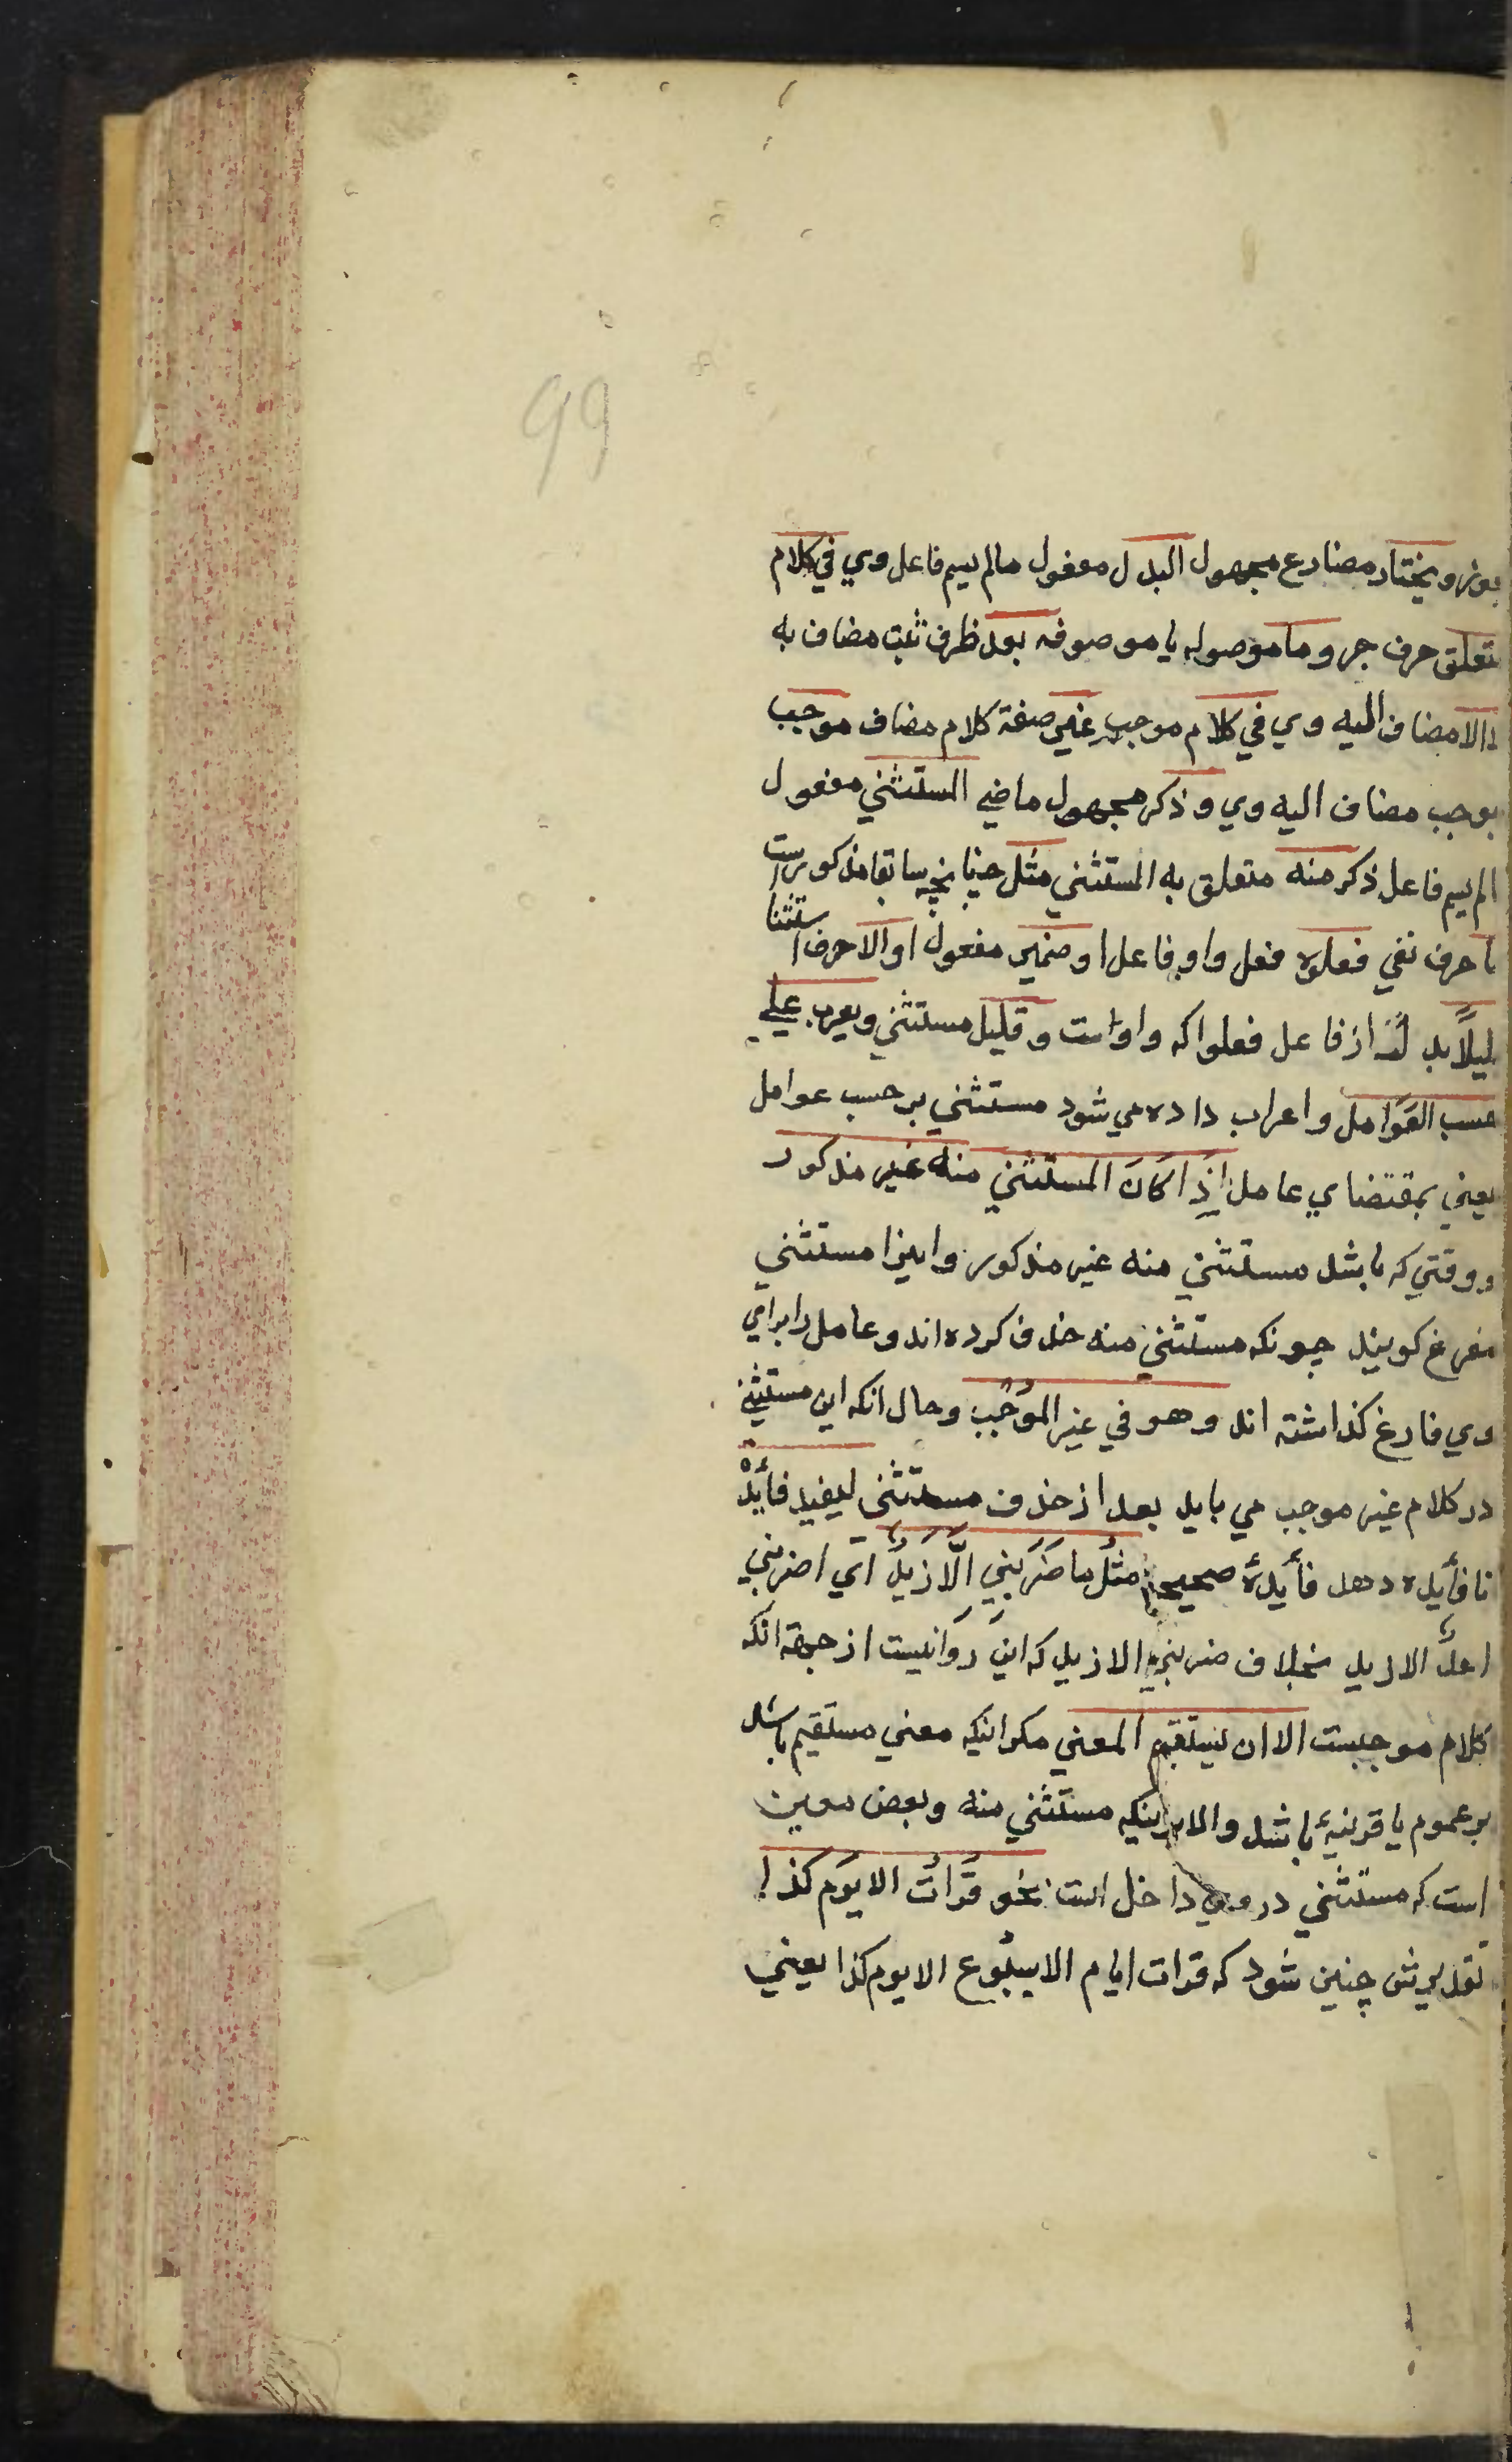 99
ويختار مضارع مجهول البدل مفعول مالم يسم فاعل وي في كلام
متعلق حرف جر و ما موصوله يا موصوفه بعد ظرف ثبت مضاف به
الا مضاف اليه وي في كلام موجب غير صفة كلام مضاف موجب
موجب مضاف اليه وي و ذكر مجهول ماضي المستثني مفعول
لم يسم فاعل ذكر منه متعلق به المستثني مثل چنانچه سابقا مذكور است
ما حرف نفي فعلوه فعل واو فاعل او ضمير مفعول او الا حرف استثنا
قليلاً بدل از فاعل فعلوا كه واو است و قليل مستثني ويعرب علي
حسب العَوَامل و اعراب داده مي شود مستثني بر حسب عوامل
يعني بمقتضاي عامل اِذَا كَانَ المستثني منه غير مذكور
و وقتي كه باشد مستثني منه غير مذكور و اينرا مستثني
مفرغ كويند چونكه مستثني منه حذف كرده اند و عامل را براي
وي فارغ كذاشته اند وهو في غير الموُجَب و حال انكه اين مستثني
در كلام غير موجب مي بايد بعد از حذف مستثني ليفيد فأيدْة
تا فأيده دهد فأيدهٔ صحيح مثل ما ضَرَبَنِي اِلَّا زَيدٌ اَي ما ضربني
احدٌ الا زيد بخلاف ضربني الا زيد كه اين روا نيست از جهة انكه
كلام موجبست الا ان يستقيم المعني مكر انيكه معني مستقيم باشد
بر عموم يا قرينهٔ باشد والا بر انيكه مستثني منه و بعض معين
است كه مستثني در وي داخل است نحو قَرَأتُ الا يوَم كذا
تقديرش چنين شود كه قرات ايام الاسبُوع الا يوم كذا يعني